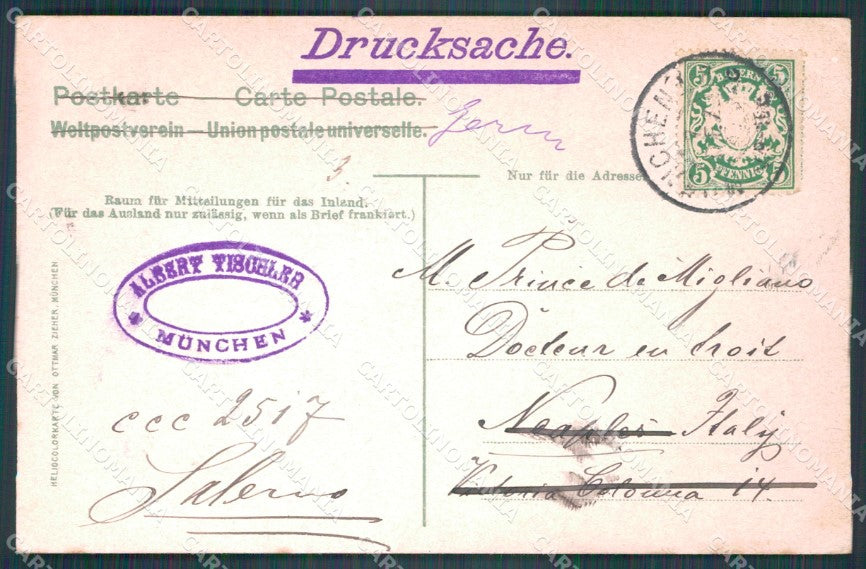 Drucksache.
Postkarte — Carte Postale.
Weltpostverein — Union postale universelle.
3.
Nur für die Adresse
Raum für Mitteilungen für das Inland.
(Für das Ausland nur zulässig, wenn als Brief frankiert.)
BAYERN
5 5
5 PFENNIG 5
MÜNCHEN
ALBERT TISCHLER
* MÜNCHEN *
M. Prince de Migliano
Docteur en droit
Neaples Italy
Vittoria Colonna 14.
ccc 2517
Salerno
HELIOCOLORKARTE VON OTTMAR ZIEHER, MÜNCHEN
CARTOLINOMANIA